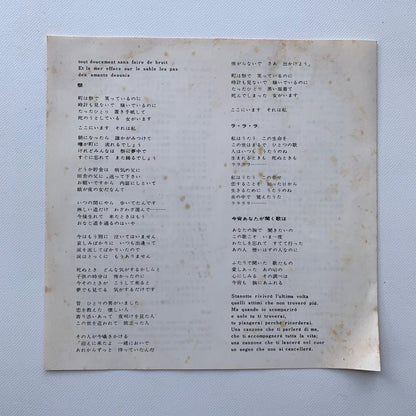 tout doucement sans faire de bruit
Et la mer efface sur le sable les pas
des amants desunis
祭
町は祭で 笑っているのに
時計も見ないで 騒いでいるのに
たったひとり 置き手紙して
死のうとしている 女がいます
ここにいます それは私
朝になったら 誰かがみつけて
噂が町に 流れるでしょう
けれどみんなは 祭に夢中で
すぐに忘れて また踊るでしょう
どうか貯金は 病気の父に
田舎の父に 送って下さい
お願いですから 内証にしといて
親が夜の女だなんて
いつの間にやら 歩いてたんです
淋しい道だけ わざわざ選んで
今後生れて 来たときはもう
おなじ道を通るのはいや
今はもう別に 泣いてはいません
哀しみばかりに 出逢って
涙を流してばかりいたので
涙はとっくに もうありません
死ぬとき どんな気がするかしらと
子供の時分は 怖かったのに
今そのときが こうして来ると
夢でも見てる 気がするだけです
昔 ひとりの男がいました
恋を教えた 懐しい人
寄り添いあって 夜明けを見た人
この世を追われて 旅立った人
その人が今囁きかける
「迎えに来たよ 一緒においで
あれからずっと 待っていたんだ
怖がらないで さあ 出かけよう」
町は祭で 笑っているのに
時計も見ないで 騒いでいるのに
たったひとり 黒い服着て
死んでしまった 女がいます
ここにいます それは私
ラ・ラ・ラ
私はうたう この生命を
この世はまるで ひとつの歌
人はいつも うたうのね
生まれるときも 死ぬときも
ラララララ
私はうたう この幸せ
恋することを 知った日から
生きるために うたうのね
命の中で 覚えたうた
ラララララ
今宵あなたが聞く歌は
あなたの胸で 聞きたいの
この歌こそ いま一度
わたしを忘れて すてて行った
あの人 憎いはずの人なのに
ふたりで聞いた 歌だもの
愛しあった あの頃の
心にしみる その調べは
今宵も 胸にあふれる
Stanotte rivivrò l'ultima volta
quelli attimi che non troverò più.
Ma quando lo scomparirò
e solo tu ti troverai,
tu piangerai perchè ricorderai.
Una canzone che ti parlerà di me,
che ti accompagnerà tutta la vita;
una canzone che ti lascerà nel cuor
un segno che non si cancellerà.